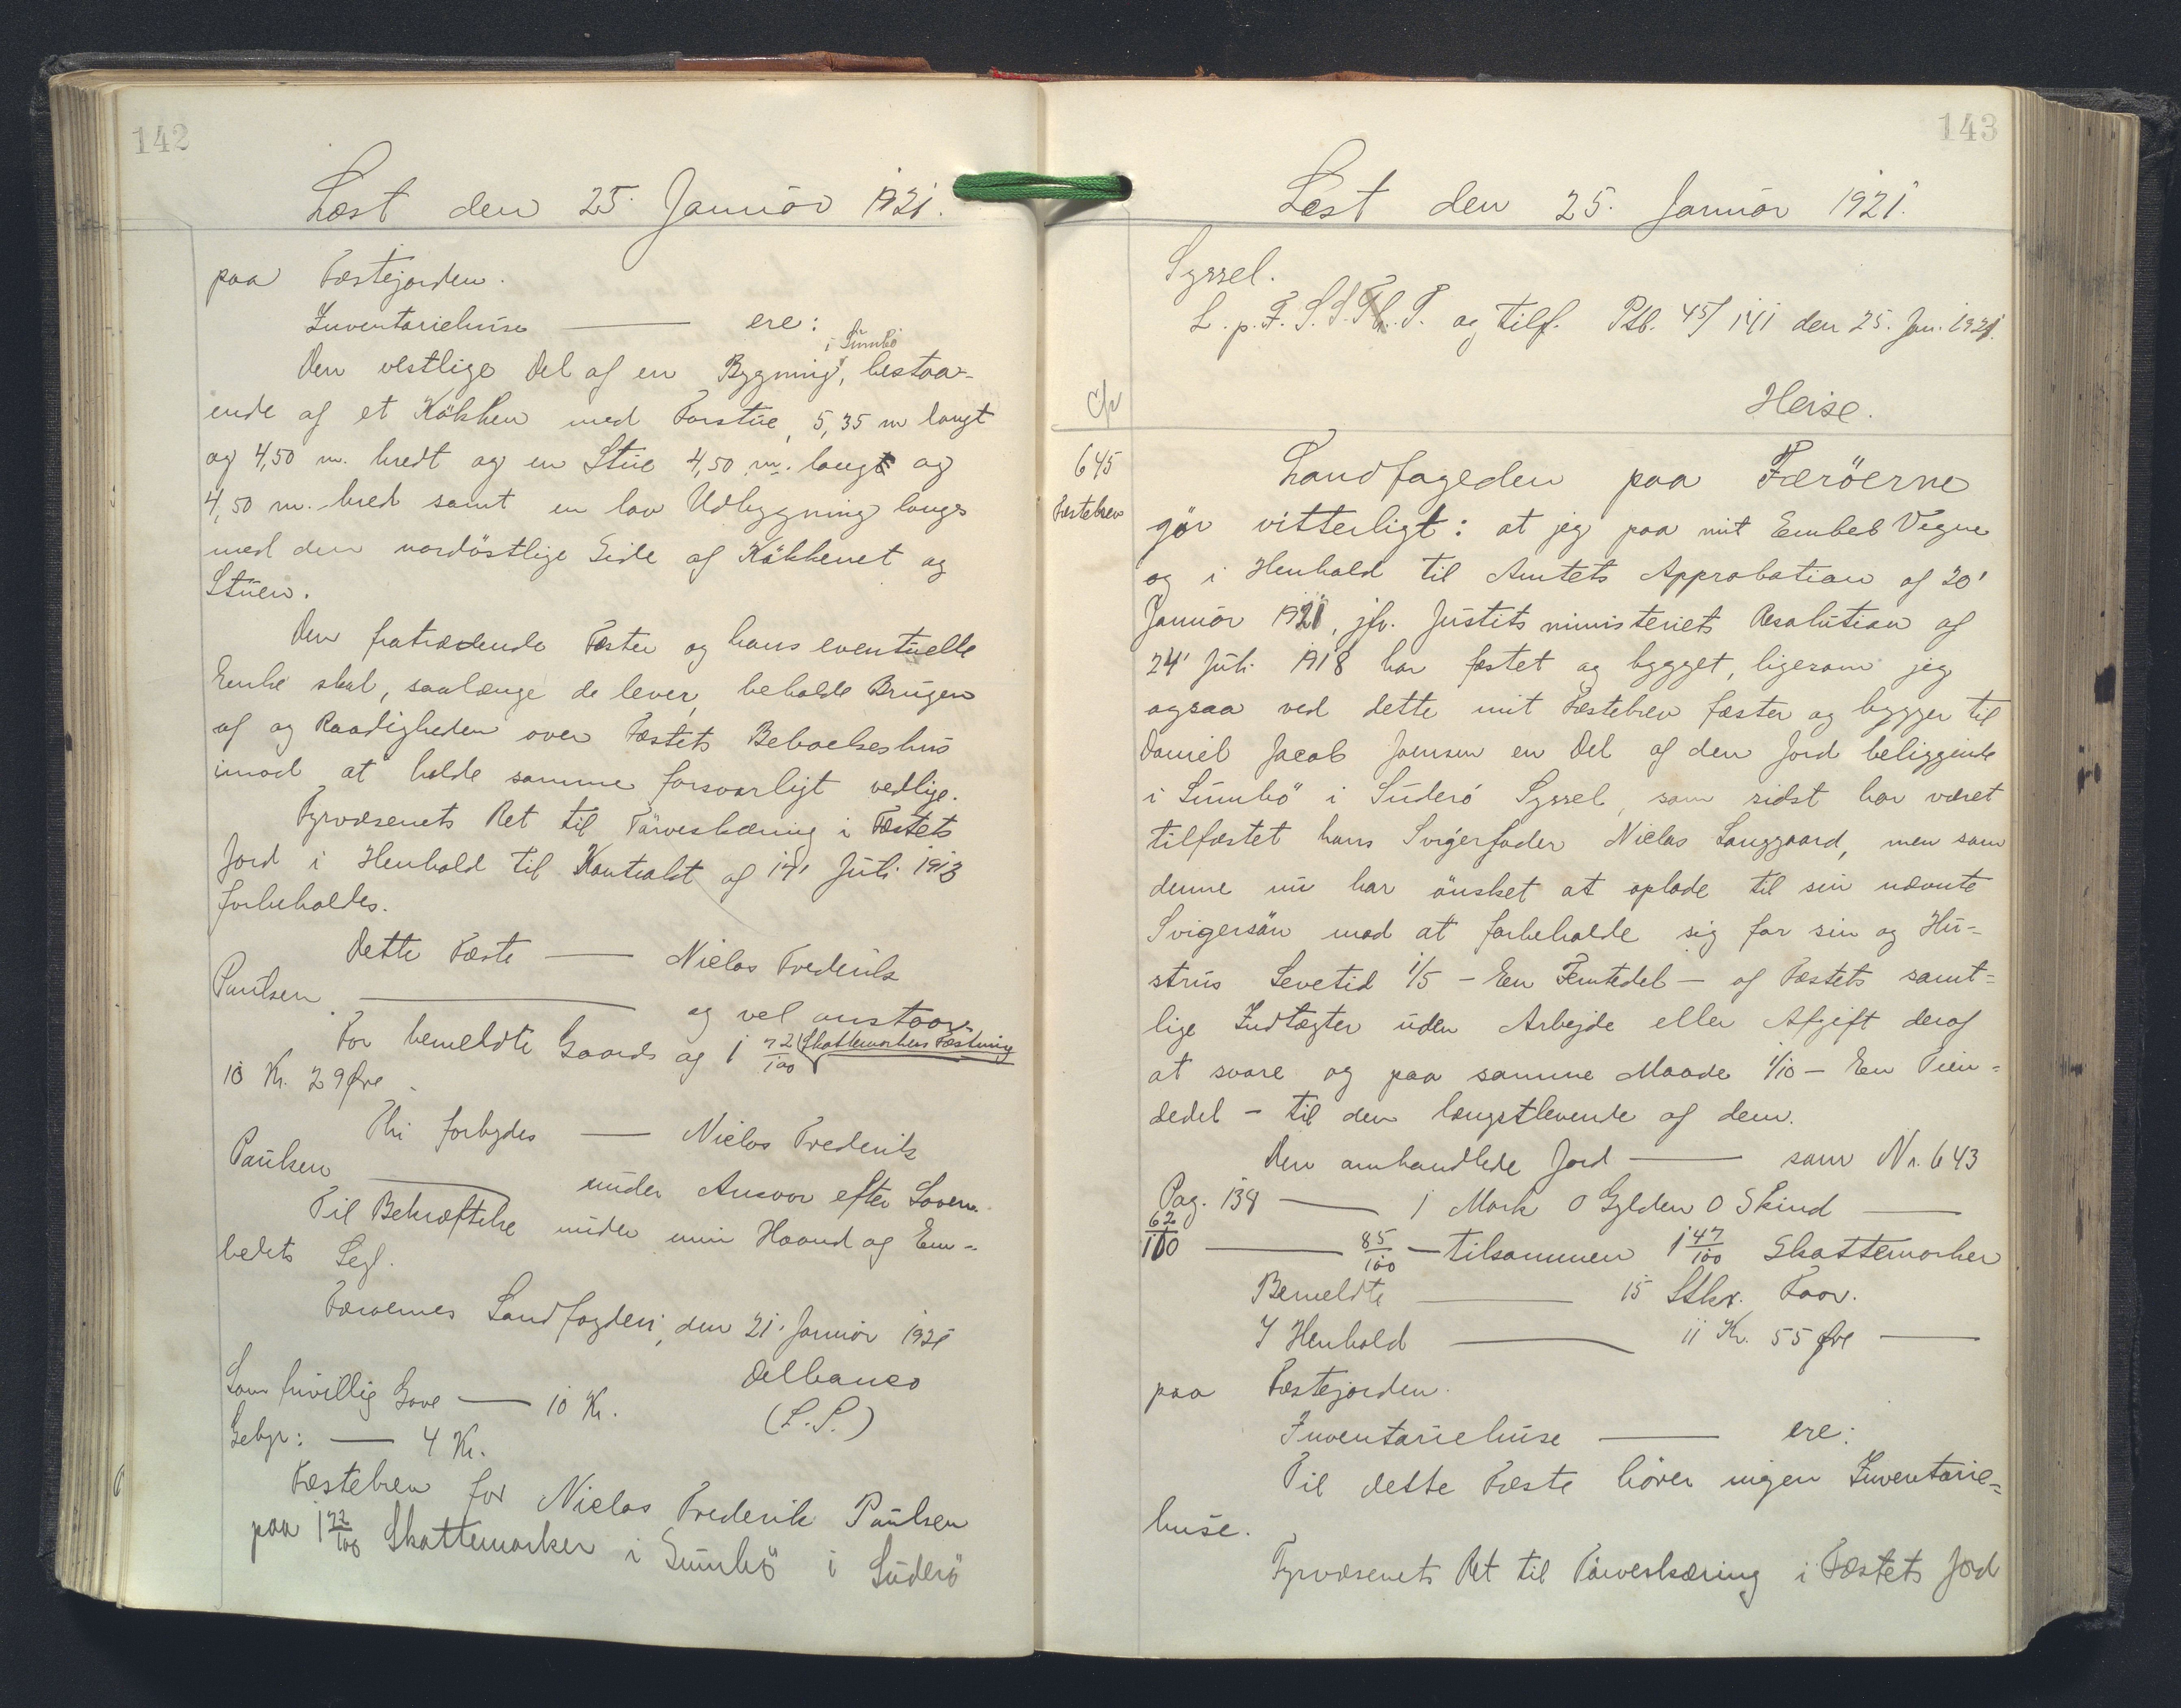 142
Læst den 25. Januar 1921.
paa Fæstejorden.
Inventariehuse — ere:
i Sumbö
Den vestlige Del af en Bygning, bestaa-
ende af et Kökken med Forstue, 5,35 m langt
og 4,50 m. bredt og en Stue 4,50 m. lang og
4,50 m. bred samt en lav Udbygning langs
med den nordöstlige Side af Kökkenet og
Stuen.
Den fratrædende Fæster og hans eventuelle
Enke skal, saalænge de lever, beholde Brugen
af og Raadigheden over Fæstets Beboelseshus
imod at holde samme forsvarligt vedlige.
Fyrvæsenets Ret til Törveskæring i Fæstets
Jord i Henhold til Kontrakt af 14' Juli 1913
forbeholdes.
Dette Fæste — Niclas Frederik
Paulsen — og vel anstaar.
For bemeldte Gaards og 1 72/100 Skattemarkers Fæstning
10 Kr. 29 Øre.
Thi forbydes — Niclas Frederik
Paulsen — under Ansvar efter Loven.
Til Bekræftelse under min Haand og Em-
bedets Segl.
Færøernes Landfogderi, den 21. Januar 1921
Delbanco
(L.S.)
Som frivillig Gave — 10 Kr.
Gebyr: — 4 Kr.
Fæstebrev for Niclas Frederik Paulsen
paa 1 72/100 Skattemarker i Sumbö i Suderö
143
Læst den 25. Januar 1921.
Syssel.
L. p. F. S. S. Th. P. og tilf. Ptb. 45/141 den 25. Jan. 1921.
Heise.
645
Fæstebrev
Landfogeden paa Færöerne
gör vitterligt: at jeg paa mit Embeds Vegne
og i Henhold til Amtets Approbation af 20'
Januar 1921, jfr. Justitsministeriets Resolution af
24' Juli 1918 har fæstet og bygget, ligesom jeg
ogsaa ved dette mit Fæstebrev fæster og bygger til
Daniel Jacob Joensen en Del af den Jord beliggende
i Sumbö i Suderö Syssel, som sidst har været
tilfæstet hans Svigerfader Niclas Langgaard, men som
denne nu har önsket at oplade til sin nævnte
Svigersön mod at forbeholde sig for sin og Hu-
strus Levetid 1/5 - En Femtedel - af Fæstets samt-
lige Indtægter uden Arbejde eller Afgift deraf
at svare og paa samme Maade 1/10 - En Tien-
dedel - til den længstlevende af dem.
Den omhandlede Jord — som Nr. 643
Pag. 138 — 1 Mark 0 Gylden 0 Skind —
62/100 — 85/100 — tilsammen 1 47/100 Skattemarker
Bemeldte — 15 Stkr. Faar.
I Henhold — 11 Kr. 55 Øre —
paa Fæstejorden.
Inventariehuse — ere:
Til dette Fæste hörer ingen Inventarie-
huse.
Fyrvæsenets Ret til Törveskæring i Fæstets Jord